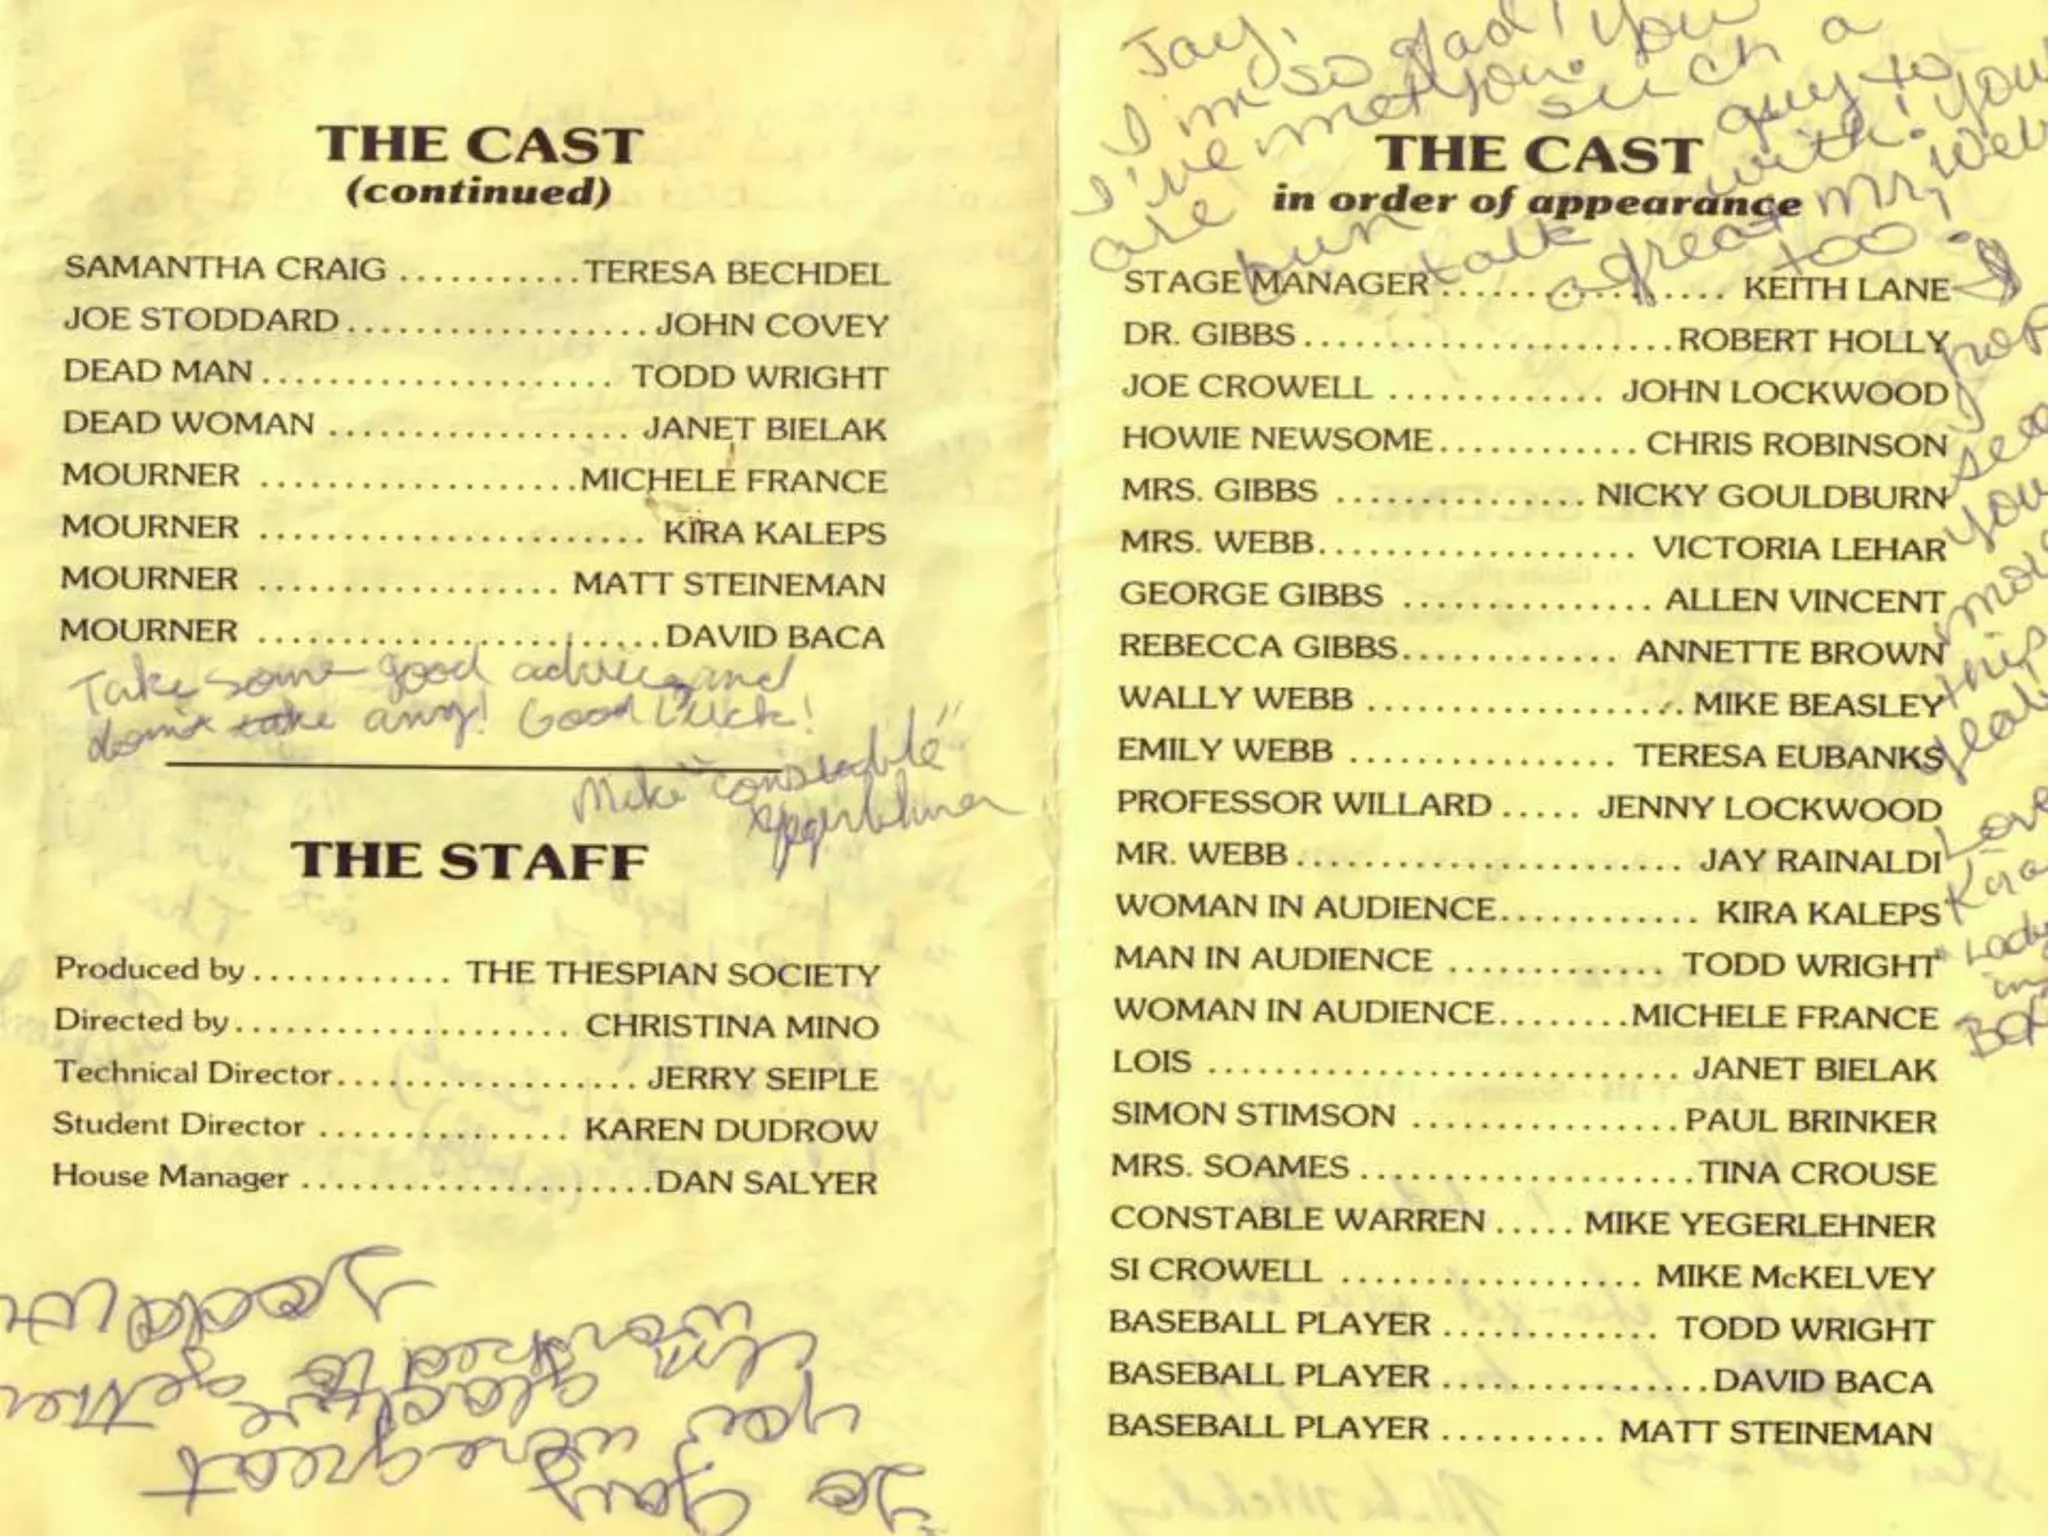 THE CAST
(continued)
SAMANTHA CRAIG ........... TERESA BECHDEL
JOE STODDARD .................. JOHN COVEY
DEAD MAN ..................... TODD WRIGHT
DEAD WOMAN .................. JANET BIELAK
MOURNER ................... MICHELE FRANCE
MOURNER ....................... KIRA KALEPS
MOURNER .................. MATT STEINEMAN
MOURNER ........................ DAVID BACA
Take some good advice, and
don't take any! Good Luck!
Mike "constable"
Yegerlehner
THE STAFF
Produced by ............ THE THESPIAN SOCIETY
Directed by .................... CHRISTINA MINO
Technical Director .................. JERRY SEIPLE
Student Director ............... KAREN DUDROW
House Manager ..................... DAN SALYER
To Jay
you were great
I'm glad to have
worked together
Jay,
I'm so glad
I've met you! You
are such a
fun guy to
talk with! You
a great Mr. Webb
too!
I hope
I see
you
more
this
year
Love
Kira
"Lady
in
Box"
THE CAST
in order of appearance
STAGE MANAGER ................. KEITH LANE
DR. GIBBS ...................... ROBERT HOLLY
JOE CROWELL ............. JOHN LOCKWOOD
HOWIE NEWSOME ............ CHRIS ROBINSON
MRS. GIBBS ............... NICKY GOULDBURN
MRS. WEBB ................... VICTORIA LEHAR
GEORGE GIBBS ............... ALLEN VINCENT
REBECCA GIBBS ............. ANNETTE BROWN
WALLY WEBB ................... MIKE BEASLEY
EMILY WEBB ................ TERESA EUBANKS
PROFESSOR WILLARD ..... JENNY LOCKWOOD
MR. WEBB ....................... JAY RAINALDI
WOMAN IN AUDIENCE ............ KIRA KALEPS
MAN IN AUDIENCE ............. TODD WRIGHT
WOMAN IN AUDIENCE ........ MICHELE FRANCE
LOIS ............................ JANET BIELAK
SIMON STIMSON ................ PAUL BRINKER
MRS. SOAMES .................... TINA CROUSE
CONSTABLE WARREN ..... MIKE YEGERLEHNER
SI CROWELL .................. MIKE McKELVEY
BASEBALL PLAYER ............. TODD WRIGHT
BASEBALL PLAYER ................ DAVID BACA
BASEBALL PLAYER .......... MATT STEINEMAN